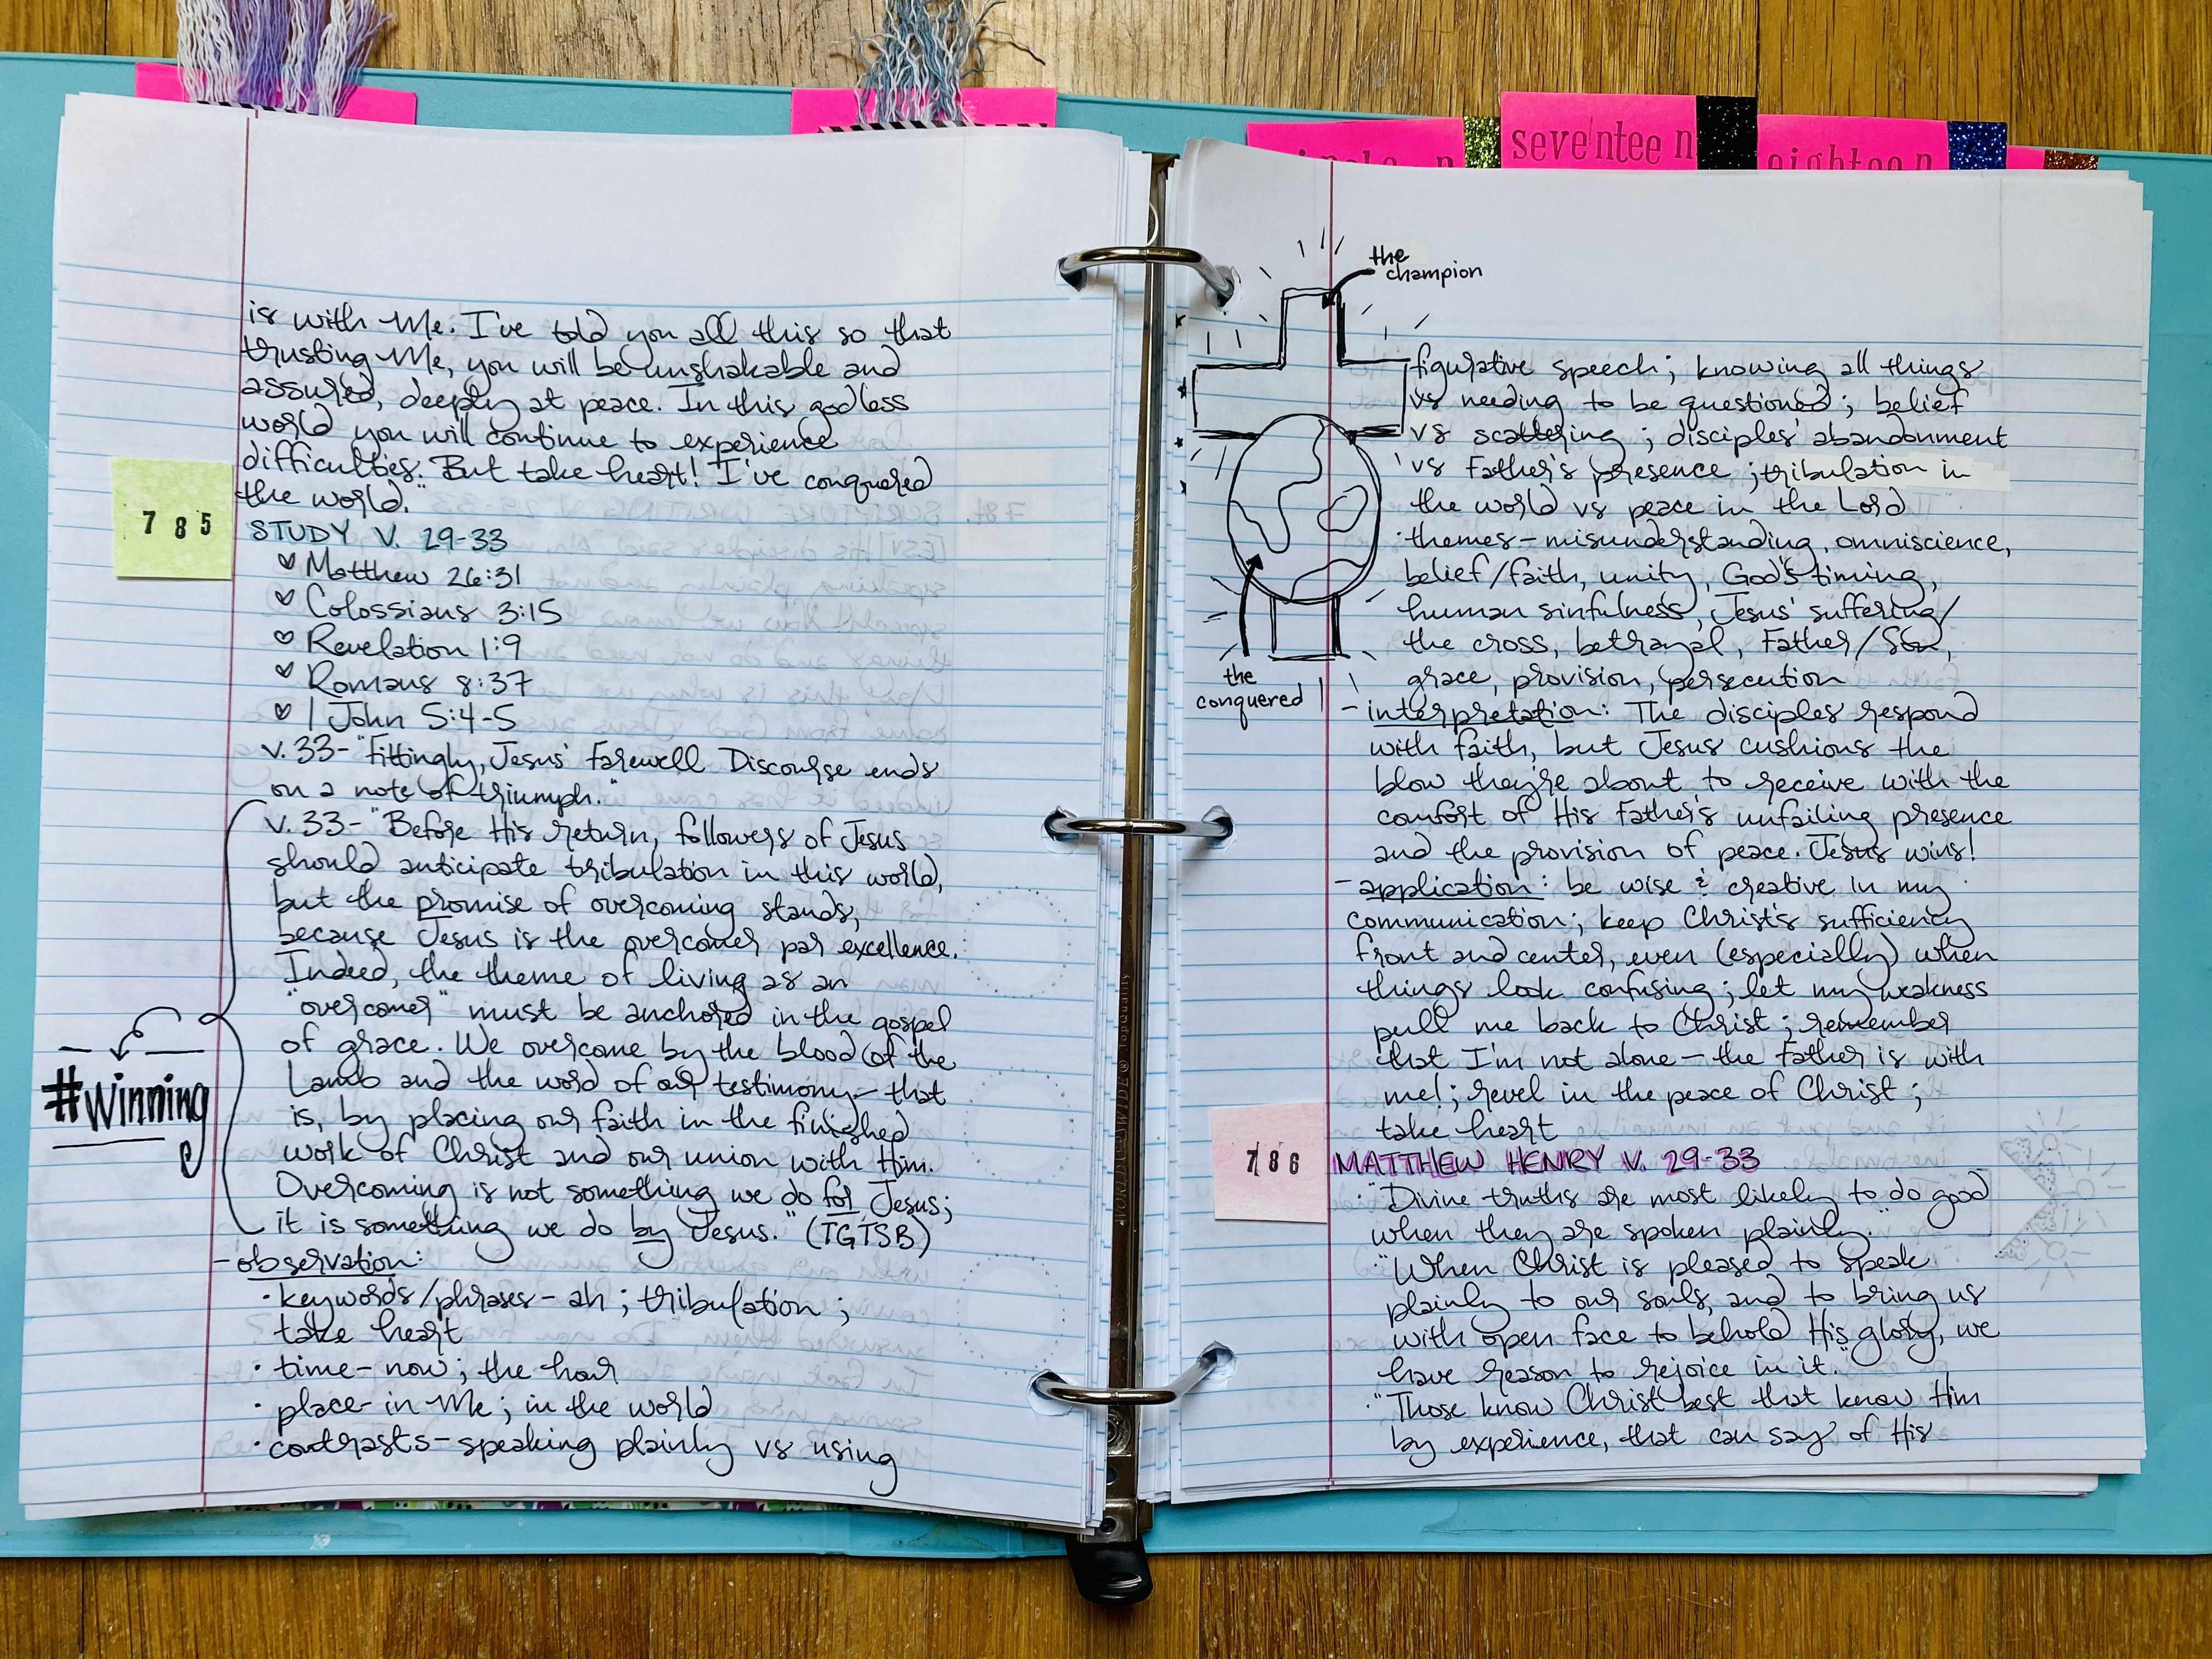 is with Me. I've told you all this so that
trusting Me, you will be unshakable and
assured, deeply at peace. In this godless
world you will continue to experience
difficulties. But take heart! I've conquered
the world."
785
STUDY V. 29-33
♡ Matthew 26:31
♡ Colossians 3:15
♡ Revelation 1:9
♡ Romans 8:37
♡ 1 John 5:4-5
v. 33- "Fittingly, Jesus' Farewell Discourse ends
on a note of triumph."
v. 33- "Before His return, followers of Jesus
should anticipate tribulation in this world,
but the promise of overcoming stands,
because Jesus is the overcomer par excellence.
Indeed, the theme of living as an
"overcomer" must be anchored in the gospel
of grace. We overcome by the blood of the
Lamb and the word of our testimony — that
is, by placing our faith in the finished
work of Christ and our union with Him.
Overcoming is not something we do for Jesus;
it is something we do by Jesus." (TGTSB)
#winning
- observation:
· keywords/phrases - ah ; tribulation ;
take heart
· time - now ; the hour
· place - in Me ; in the world
· contrasts - speaking plainly vs using
seventeen
eighteen
the
champion
the
conquered
figurative speech ; knowing all things
vs needing to be questioned ; belief
vs scattering ; disciples' abandonment
vs Father's presence ; tribulation in
the world vs peace in the Lord
· themes - misunderstanding, omniscience,
belief/faith, unity, God's timing,
human sinfulness, Jesus' suffering/
the cross, betrayal, Father/Son,
grace, provision, persecution
- interpretation: The disciples respond
with faith, but Jesus cushions the
blow they're about to receive with the
comfort of His Father's unfailing presence
and the provision of peace. Jesus wins!
- application: be wise & creative in my
communication ; keep Christ's sufficiency
front and center, even (especially) when
things look confusing ; let my weakness
pull me back to Christ ; remember
that I'm not alone — the Father is with
me! ; revel in the peace of Christ ;
take heart
786
MATTHEW HENRY V. 29-33
· "Divine truths are most likely to do good
when they are spoken plainly."
· "When Christ is pleased to speak
plainly to our souls, and to bring us
with open face to behold His glory, we
have reason to rejoice in it."
· "Those know Christ best that know Him
by experience, that can say of His